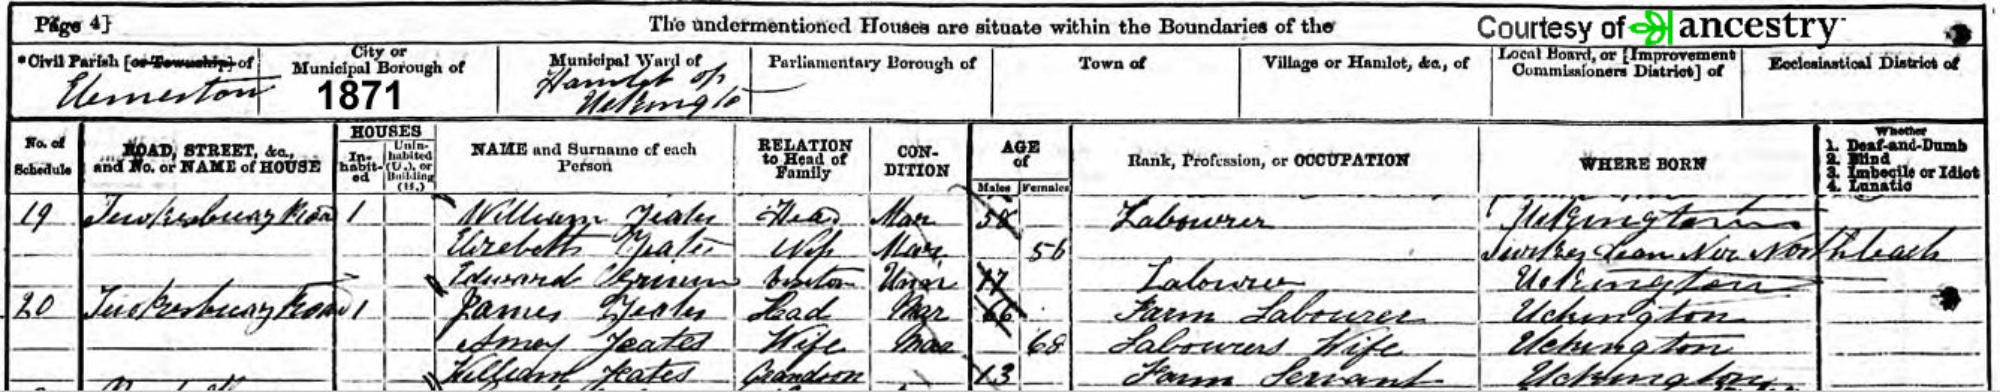 Page 4] The undermentioned Houses are situate within the Boundaries of the Courtesy of ancestry
*Civil Parish [or Township] of City or Municipal Borough of Municipal Ward of Parliamentary Borough of Town of Village or Hamlet, &c., of Local Board, or [Improvement Commissioners District] of Ecclesiastical District of
Elmerton 1871 Hamlet of Uckington
No. of Schedule ROAD, STREET, &c., and No. or NAME of HOUSE HOUSES Inhabited Uninhabited (U.), or Building (B.) NAME and Surname of each Person RELATION to Head of Family CONDITION AGE of Males Females Rank, Profession, or OCCUPATION WHERE BORN Whether 1. Deaf-and-Dumb 2. Blind 3. Imbecile or Idiot 4. Lunatic
19 Tewkesbury Road 1 William Yeates Head Mar 58 Labourer Uckington
Elizabeth Yeates Wife Mar 56 Turkey Dean Nr Northleach
Edward Visitor Unmar 17 Labourer Uckington
20 Tewkesbury Road 1 James Yeates Head Mar 66 Farm Labourer Uckington
Amey Yeates Wife Mar 68 Labourers Wife Uckington
William Yeates Grandson 13 Farm Servant Uckington